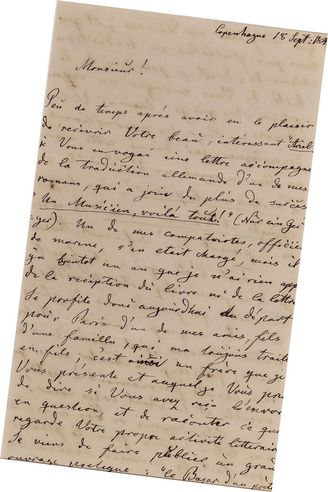 Copenhague 18 Sept. 18
Monsieur!
Peu de temps après avoir eu le plaisir
de recevoir Votre beau, intéressant "Ariel
je Vous envoyai une lettre accompagnée
de la traduction allemande d'un de mes
romans, qui a joui du plus de succès
"Un Musicien, voilà tout!" (Nur ein Gei-
ger). Un de mes compatriotes, officier
de marine, s'en était chargé, mais il
ya bientot un an que je n'ai rien app
de la réception du livre ni de la lettre
Je profite donc aujourdhui du départ
pour Paris d'un de mes amis, fils
d'une famille, qui m'a toujours traité
en fils; c'est ainsi un frère que je
Vous présente et auquel je Vous prie
de dire si Vous avez reçu l'envoi
en question et de raconter ce qui
regarde Votre propre activité littéraire
Je viens de faire publier un gran
ouvrage poetique: "le Bazar d'un